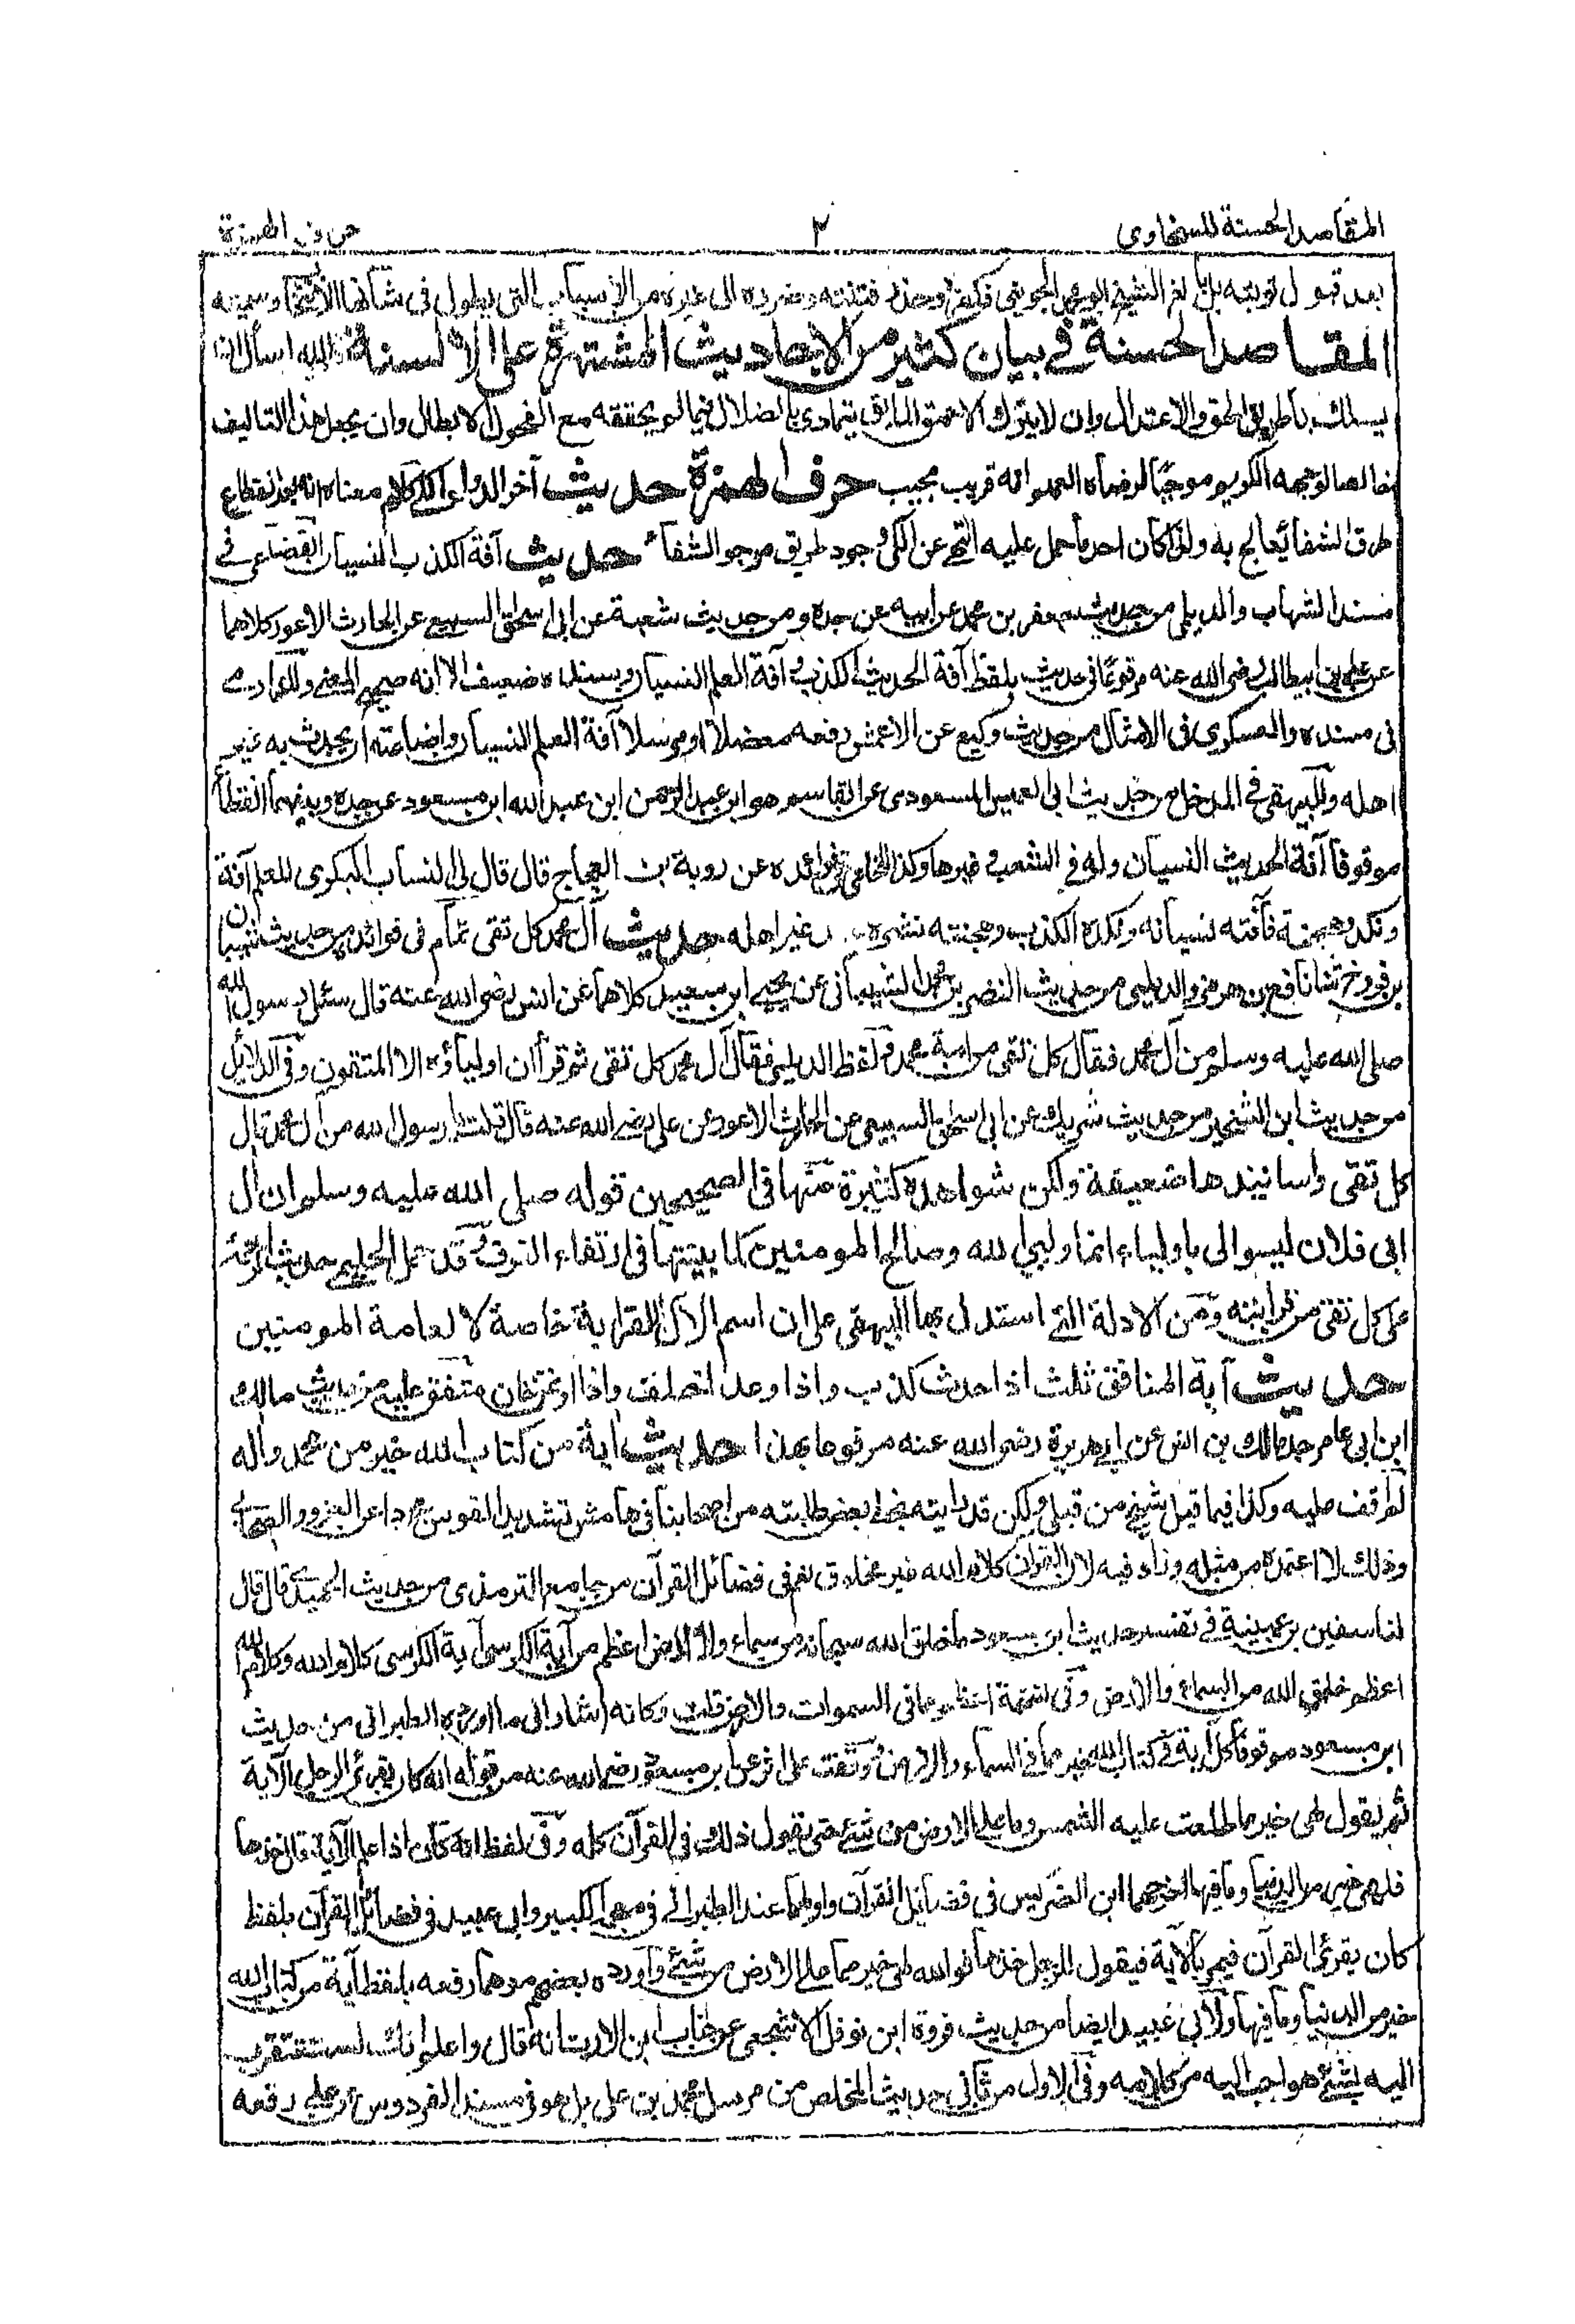 المقاصد الحسنة للسخاوى ٢ حرف الهمزة
بعد قبول توبته بل بالغ الشيخ ابو محمد الجوينى فكفره وحذر فتنته وضرره الى غيره من الأسباب التى يطول فى شأنها الأنتخاء وسميته
المقاصد الحسنة فى بيان كثير من الاحاديث المشتهرة على الالسنة والله اسأل ان
يسلك بنا طريق الحق والاعتدال وان لا يترك الاحمق المائق يتمادى بالضلال فيما لم يحققه مع الفحول الابطال وان يجعل هذا التاليف
خالصا لوجهه الكريم موجبًا لرضاه العميم انه قريب مجيب حرف الهمزة حديث آخر الدواء الكى كلام معناه انه بعد انقطاع
طرق الشفاء يُعالج به ولذا كان احد ما حمل عليه النهى عن الكى وجود طريق مرجو الشفاء حديث آفة الكذب النسيان القضاعى فى
مسند الشهاب والديلمى من حديث جعفر بن محمد عن ابيه عن جده ومن حديث شعبة عن ابى اسحق السبيعى عن الحارث الاعور كلاهما
عن على بن ابيطالب رضى الله عنه مرفوعًا فى حديث بلفظ آفة الحديث الكذب وآفة العلم النسيان وسنده ضعيف الا انه صحيح المعنى وللدارمى
فى مسنده والعسكرى فى الامثال من حديث وكيع عن الاعمش رفعه معضلا او مرسلا آفة العلم النسيان واضاعته ان يحدث به غير
اهله وللبيهقى فى المدخل من حديث ابى العميس المسعودى عن القاسم هو ابن عبد الرحمن ابن عبد الله ابن مسعود عن جده وبينهما انقطاع
موقوفا آفة الحديث النسيان وله فى الشعب وغيرها وكذا للخلعى فى فوائده عن روبة بن العجاج قال قال لى النساب البكرى للعلم آفة
ونكد وهجنة فآفته نسيانه ونكده الكذب وهجنته نشره عند غير اهله حديث آل محمد كل تقى تمّام فى فوائده من حديث شيبان
بن فروخ ثنا نافع بن هرمز والديلمى من حديث النضر بن محمد الشيبانى عن يحيى ابن سعيد كلاهما عن انس رضى الله عنه قال سئل رسول الله
صلى الله عليه وسلم من آل محمد فقال كل تقى من امة محمد ولفظ الديلمى فقال آل محمد كل تقى ثم قرأ ان اولياؤه الا المتقون وفى الدلائل
من حديث ابن الشخير من حديث شريك عن ابى اسحاق السبيعى عن الحارث الاعور عن على رضى الله عنه قال قلت يا رسول الله من آل محمد قال
كل تقى واسانيدها ضعيفة ولكن شواهده كثيرة منها فى الصحيحين قوله صلى الله عليه وسلم ان آل
ابى فلان ليسوا لى باولياء انما وليى الله وصالح المومنين كما بينتها فى ارتقاء الغرف وقد حمل الحليمى حديث الترجمة
على كل تقى من قرابته ومن الادلة التى استدل بها البيهقى على ان اسم الآل للقرابة خاصة لا لعامة المومنين
حديث آية المنافق ثلث اذا حدث كذب واذا وعد اخلف واذا اوتمن خان متفق عليه من حديث مالك
ابن ابى عامر جد مالك بن انس عن ابى هريرة رضى الله عنه مرفوعا بهذا حديث اية من كتاب الله خير من محمد وآله
لم اقف عليه وكذا فيما قيل شيخى من قبلى ولكن قد رايته بخط بعض طلبته من اصحابنا فى هامش تشديد القوس مجردا عن العزو والصحابى
وذلك لا اعتمده من مثله وزاد فيه لان القران كلام الله غير مخلوق نعم فى فضائل القرآن من جامع الترمذى من حديث الحميدى قال قال
لنا سفين بن عيينة فى تفسير حديث ابن مسعود ما خلق الله سبحانه من سماء ولا ارض اعظم من آية الكرسى آية الكرسى كلام الله وكلام الله
اعظم خلق الله من السماء والارض وفى نسخة اعظم مما فى السموات والارض قلت وكانه اشار الى ما اورده الطبرانى من حديث
ابن مسعود موقوفا كل آية فى كتاب الله خير مما فى السماء والارض ووقفت على اثر عن ابن مسعود رضى الله عنه من قوله انه كان يقرئ الرجل الآية
ثم يقول لهى خير مما طلعت عليه الشمس وما على الارض من شئ حتى يقول ذلك فى القرآن كله وفى لفظ انه كان اذا علم الآية قال خذها
فلهى خير من الدنيا وما فيها اخرجهما ابن الضريس فى فضائل القرآن واولهما عند الطبرانى فى معجمه الكبير وابى عبيد فى فضائل القرآن بلفظ
كان يقرئ القرآن فيمر بالآية فيقول للرجل خذها فوالله لهى خير مما على الارض من شئ واورده بعضهم موهما رفعه بلفظ آية من كتاب الله
خير من الدنيا وما فيها ولأبى عبيد ايضا من حديث فروة ابن نوفل الاشجعى عن خباب ابن الارت انه قال واعلم انك لست تتقرب
اليه بشئ هو احب اليه من كلامه وفى الاول من ثانى حديث المخلص من مرسل محمد بن على بل هو فى مسند الفردوس عن على رفعه